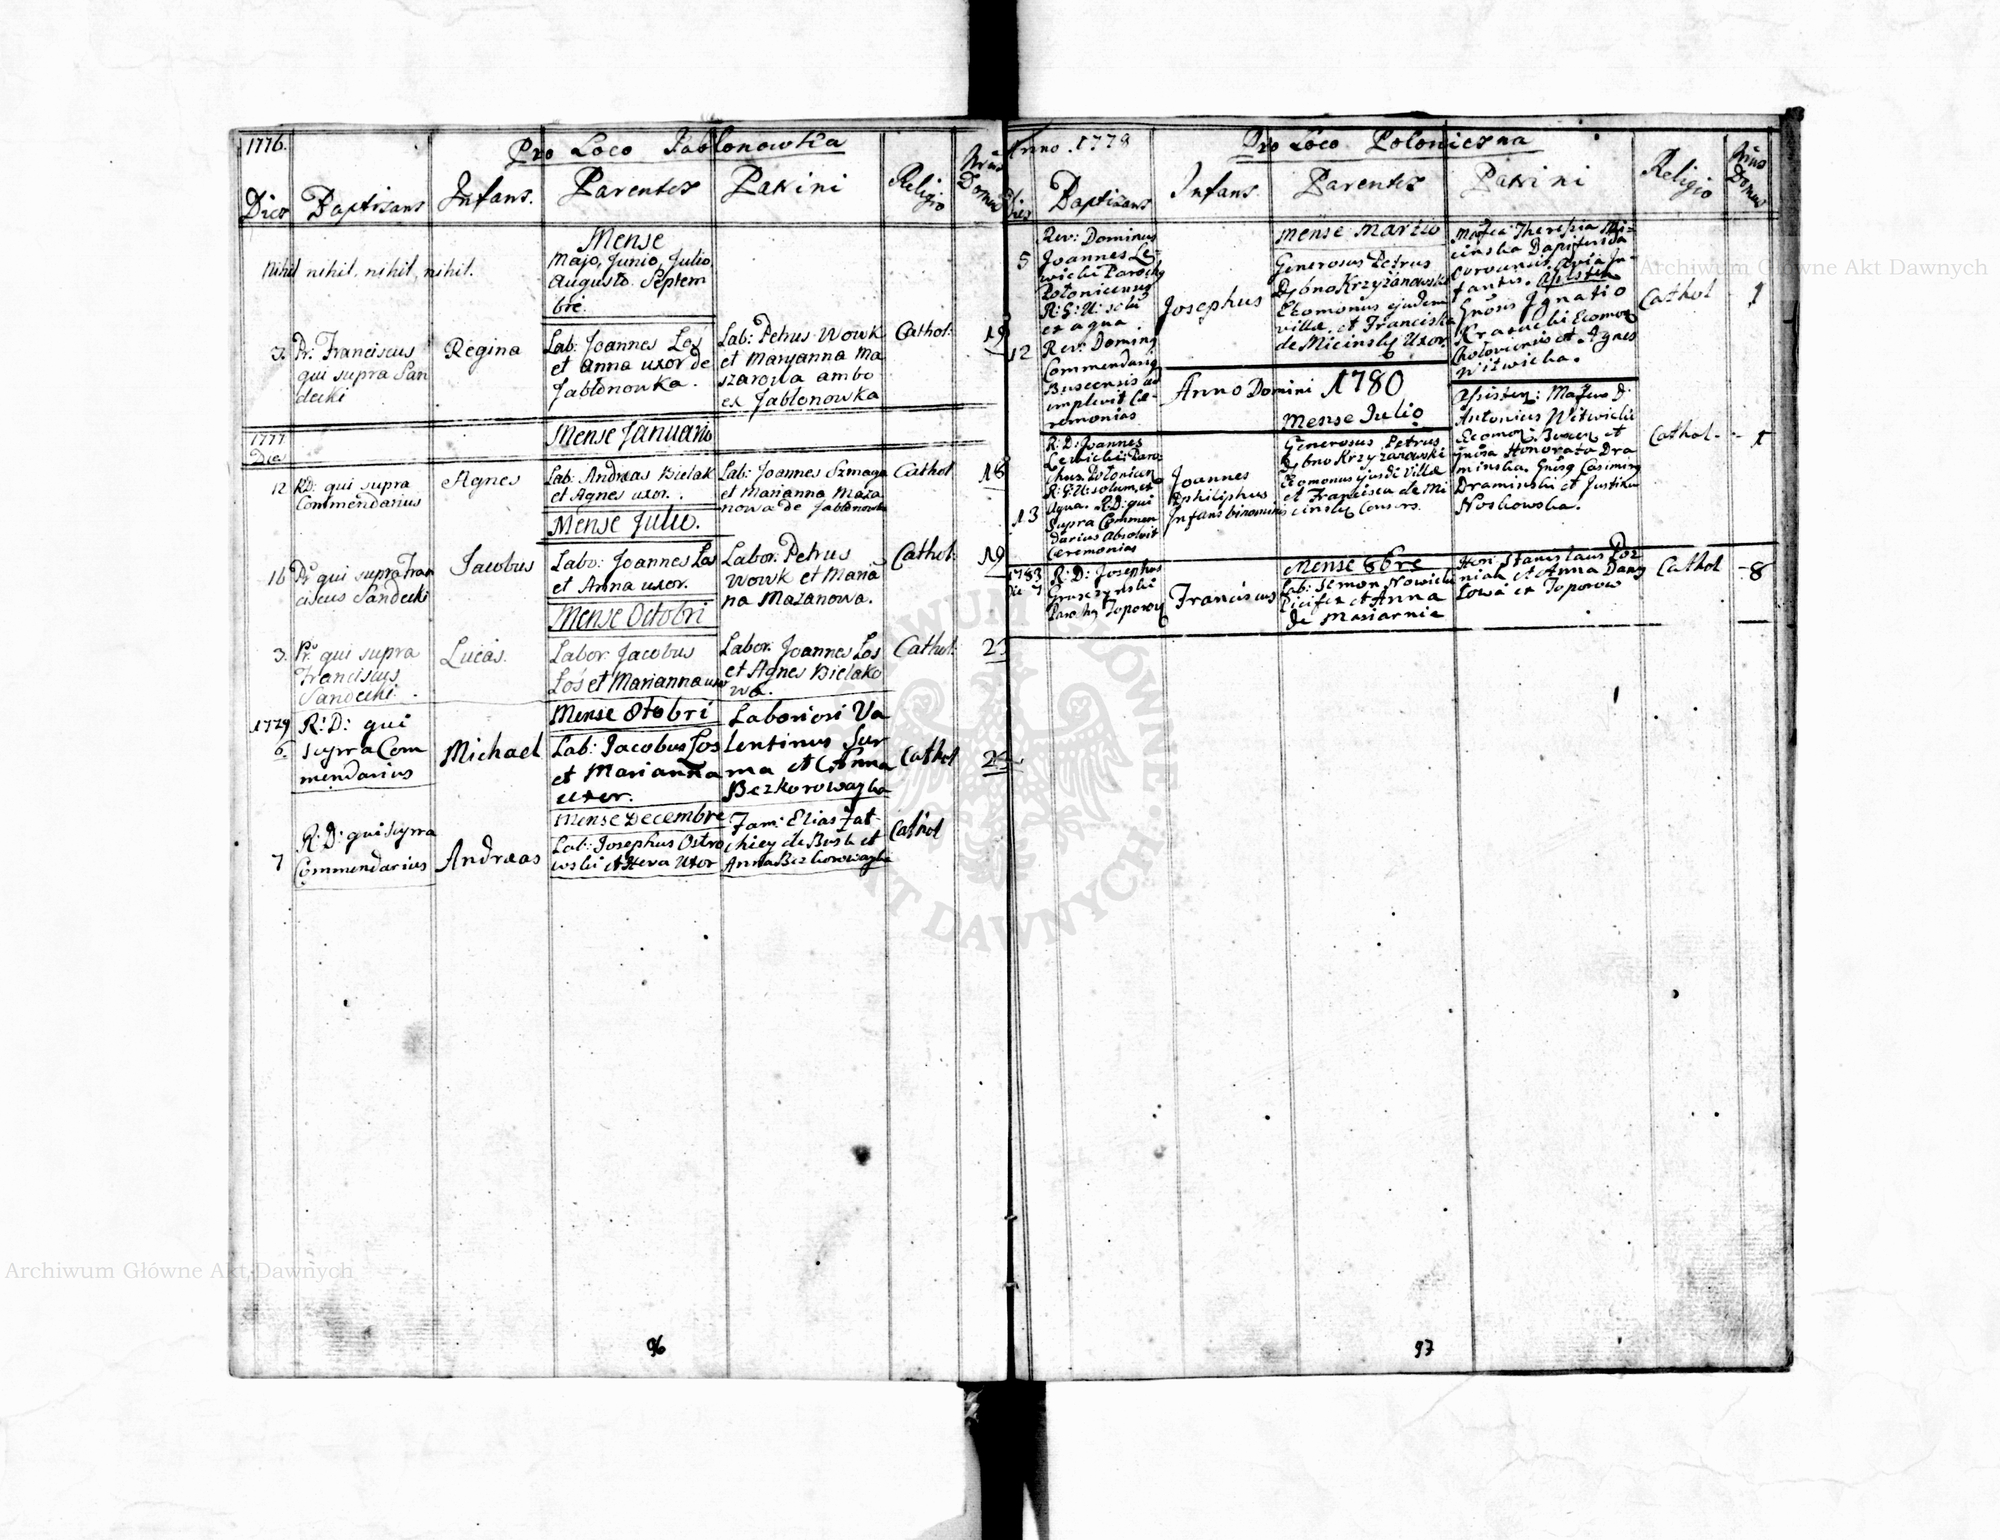 1776.
Pro Loco Jablonowka
Dies Baptisans Infans. Parentes Patrini Religio Nrus Domus
Mense
Majo, Junio, Julio
Augusto. Septem
bre.
Nihil nihil. nihil. nihil.
3. Pr: Franciscus
qui supra San
decki
Regina
Lab: Joannes Los
et Anna uxor de
Jabłonowka.
Lab: Petrus Wowk
et Maryanna Ma
szarowa ambo
ex Jabłonowka
Cathol:
19
1777
Dies
Mense Januario
12 RD: qui supra
Commendarius
Agnes
Lab: Andreas Bielak
et Agnes uxor.
Lab: Joannes Szmaga
et Marianna Maza
nowa de Jabłonowka
Cathol:
18
Mense Julio.
16 Pr: qui supra Fran
ciscus Sandecki
Jacobus
Labo: Joannes Los
et Anna uxor.
Labor: Petrus
Wowk et Maria
na Mazanowa.
Cathol:
19
Mense Octobri
3. Pr: qui supra
Franciscus
Sandecki.
Lucas.
Labor Jacobus
Łoś et Marianna uxor
Labor: Joannes Los
et Agnes Bielako
wa.
Cathol:
23
1779
6.
R: D: qui
supra Com
mendarius
Michael
Mense Octobri
Lab: Jacobus Los
et Marianna
uxor.
Laboriosi Va
lentinus Sur
ma et Anna
Bezkorowayka
Cathol
7
R: D: qui supra
Commendarius
Andreas
Mense Decembre
Lab: Josephus Ostro
wski et Hewa Uxor
Fam: Elias
de Busk et
Anna Bezkorowayka
Cathol
96
Anno 1779
Pro Loco Poloniczna
Dies Baptizans Infans. Parentes Patrini Religio Nrus Domus
5
Rev: Dominus
Joannes Le
wicki Paroch
Połonicensis
R: G: U: solu
ex aqua.
12 Rev: Dominus
Commendarius
Buscensis ad
implevit Ce-
remonias
Josephus
Mense Martio
Generosus Petrus
Dębno Krzyżanowski
Economus ejusdem
villæ, et Francisca
de Micinskij Uxor.
Theresia Mi-
cinska Dapiferida
fantis.
Ignatio
Krasucki Econom
et Agnes
Witwicka.
Cathol
1
Anno Domini 1780
Mense Julio
13
R: D: Joannes
Lewicki Paro
chus Połonicen
R: G: U: solum, et
Aqua. R:D: qui
supra Commen
darius absolvit
Ceremonias
Joannes
Philiphus
Infans binominis
Generosus Petrus
Dębno Krzyżanowski
Economus ejusdem Villæ
et Francisca de Mi
cinskij Consors.
Antonius Witwicki
et
Honorata Dra
minska. Casimirus
Draminski et Justina
Noskowska.
Cathol.
1
1783
R: D: Josephus
Paroch Toporov
Franciscus
Mense 8bre
Lab: Simon Nowicki
et Anna
de Maziarnia
Hon: Stanislaus
et Anna
ex Toporow
Cathol
8
97
Archiwum Główne Akt Dawnych
Archiwum Główne Akt Dawnych
ARCHIWUM GŁÓWNE AKT DAWNYCH